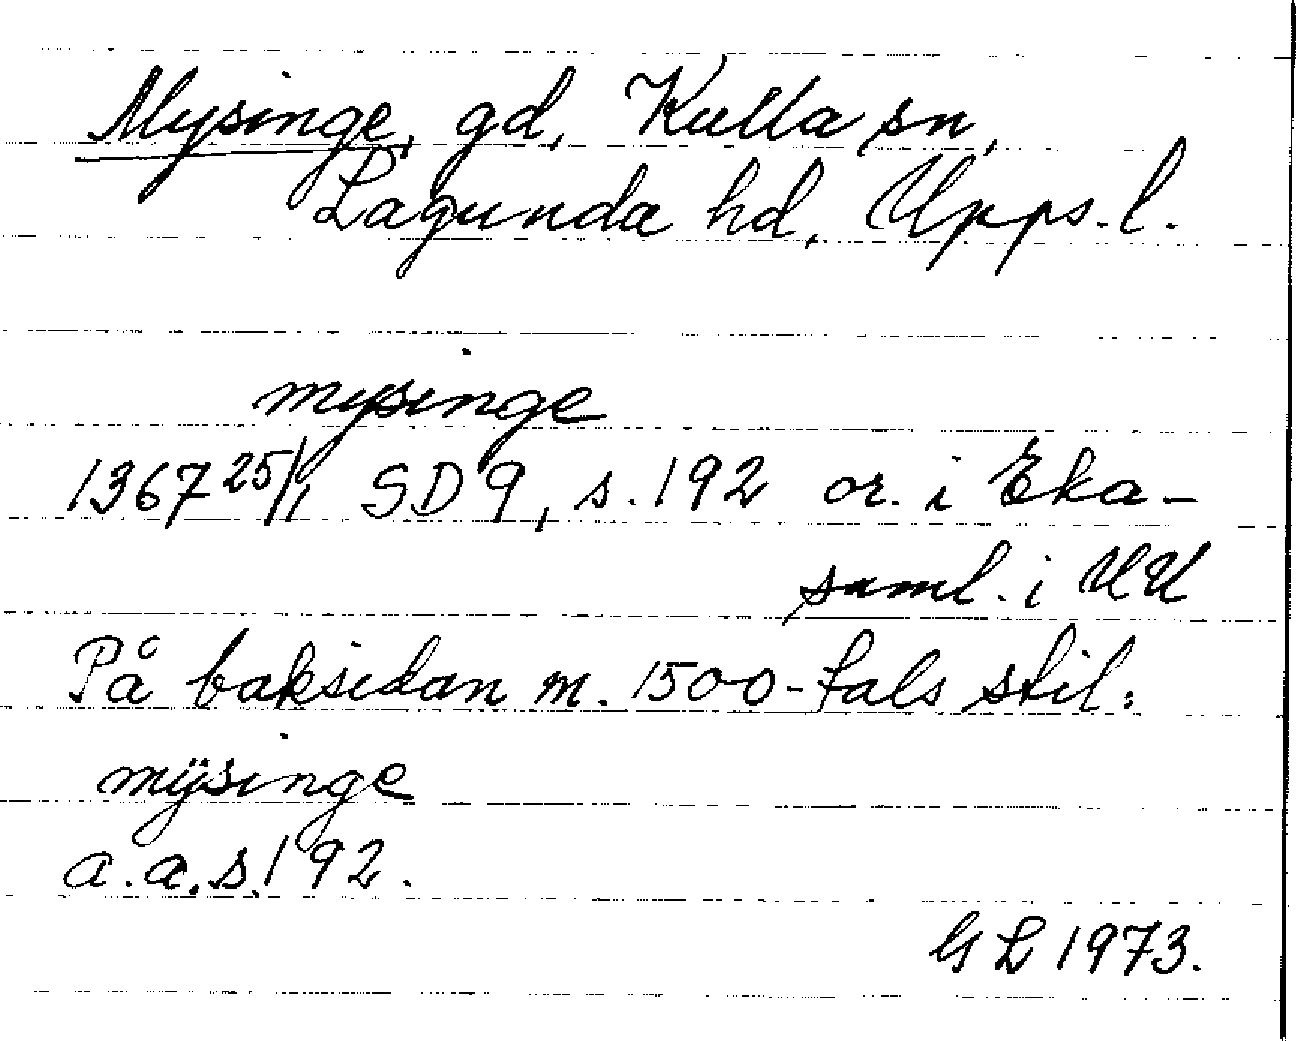 Mysinge, gd, Kulla sn,
Lagunda hd, Upps. l.
mysinge
1367 25/1, SD 9, s. 192 or. i Eka-
saml. i UU
På baksidan m. 1500-tals stil:
mÿsinge
a.a.s. 192.
GL 1973.